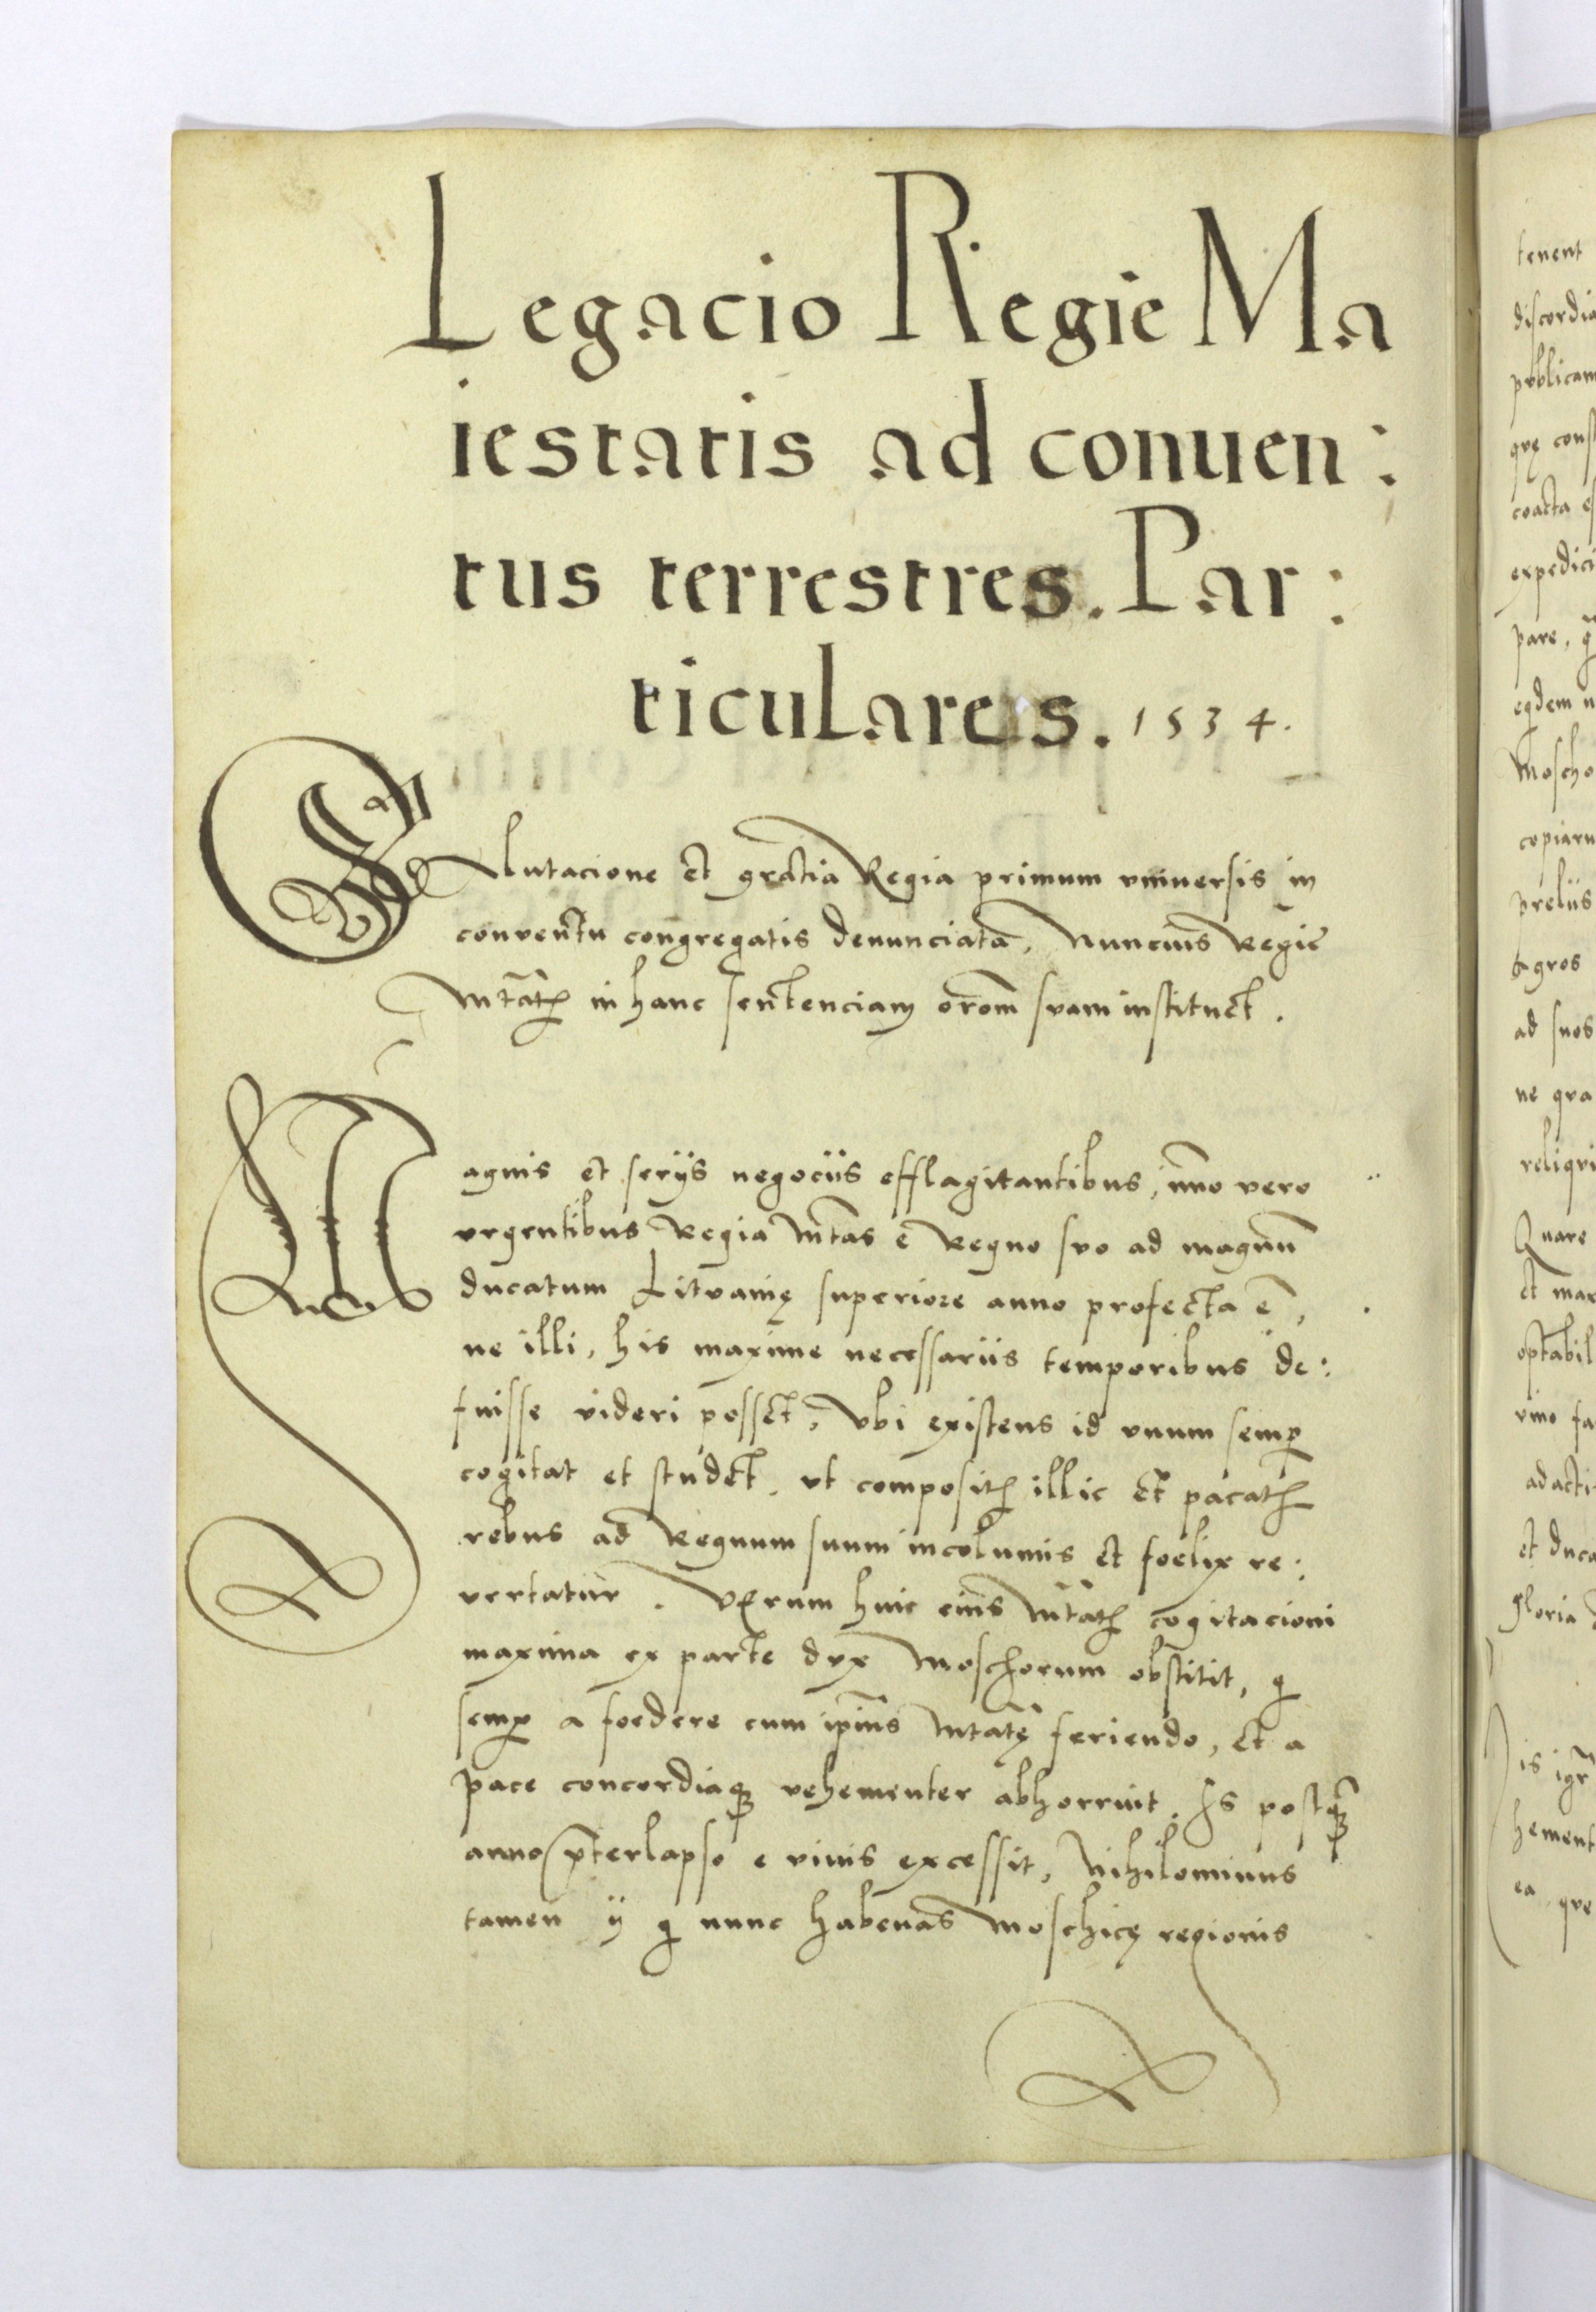 Legacio Regie Ma
iestatis ad conuen:
tus terrestres. Par:
ticulares. 1534.
Salutacione et gratia Regia primum vniuersis in
conventu congregatis denunciata, Nuncius Regie
Mtatis in hanc sentenciam orom svam instituet.
Magnis et serÿs negociis efflagitantibus, imo vero
vrgentibus Regia Mtas e Regno svo ad magnum
ducatum Litvanię superiore anno profecta ē,
ne illi, his maxime necessariis temporibus de:
fuisse videri posset, Vbi existens id vnum semp
cogitat et studet, vt compositis illic et pacatis
rebus ad Regnum suum incolumis et foelix re:
vertatur. Verum huic eius Mtatis cogitacioni
maxima ex parte dvx Moschorum obstitit, q
semp a foedere cum ipius Mtate feriendo, et a
pace concordiaq vehementer abhorruit. Is postq̄
anno p̄terlapso e viuis excessit, Nihilominus
tamen ÿ q nunc habenas Moschicę regionis
tenent
discordia
pvblicam
qvę const
coacta es
expedici
pare, q
eqdem n
Moscho
copiaru
preliis
agros
ad suos
ne qva
reliqvi
Quare
et max
optabil
vino fa
adacti
et duca
gloria
is igr
hement
ea qve